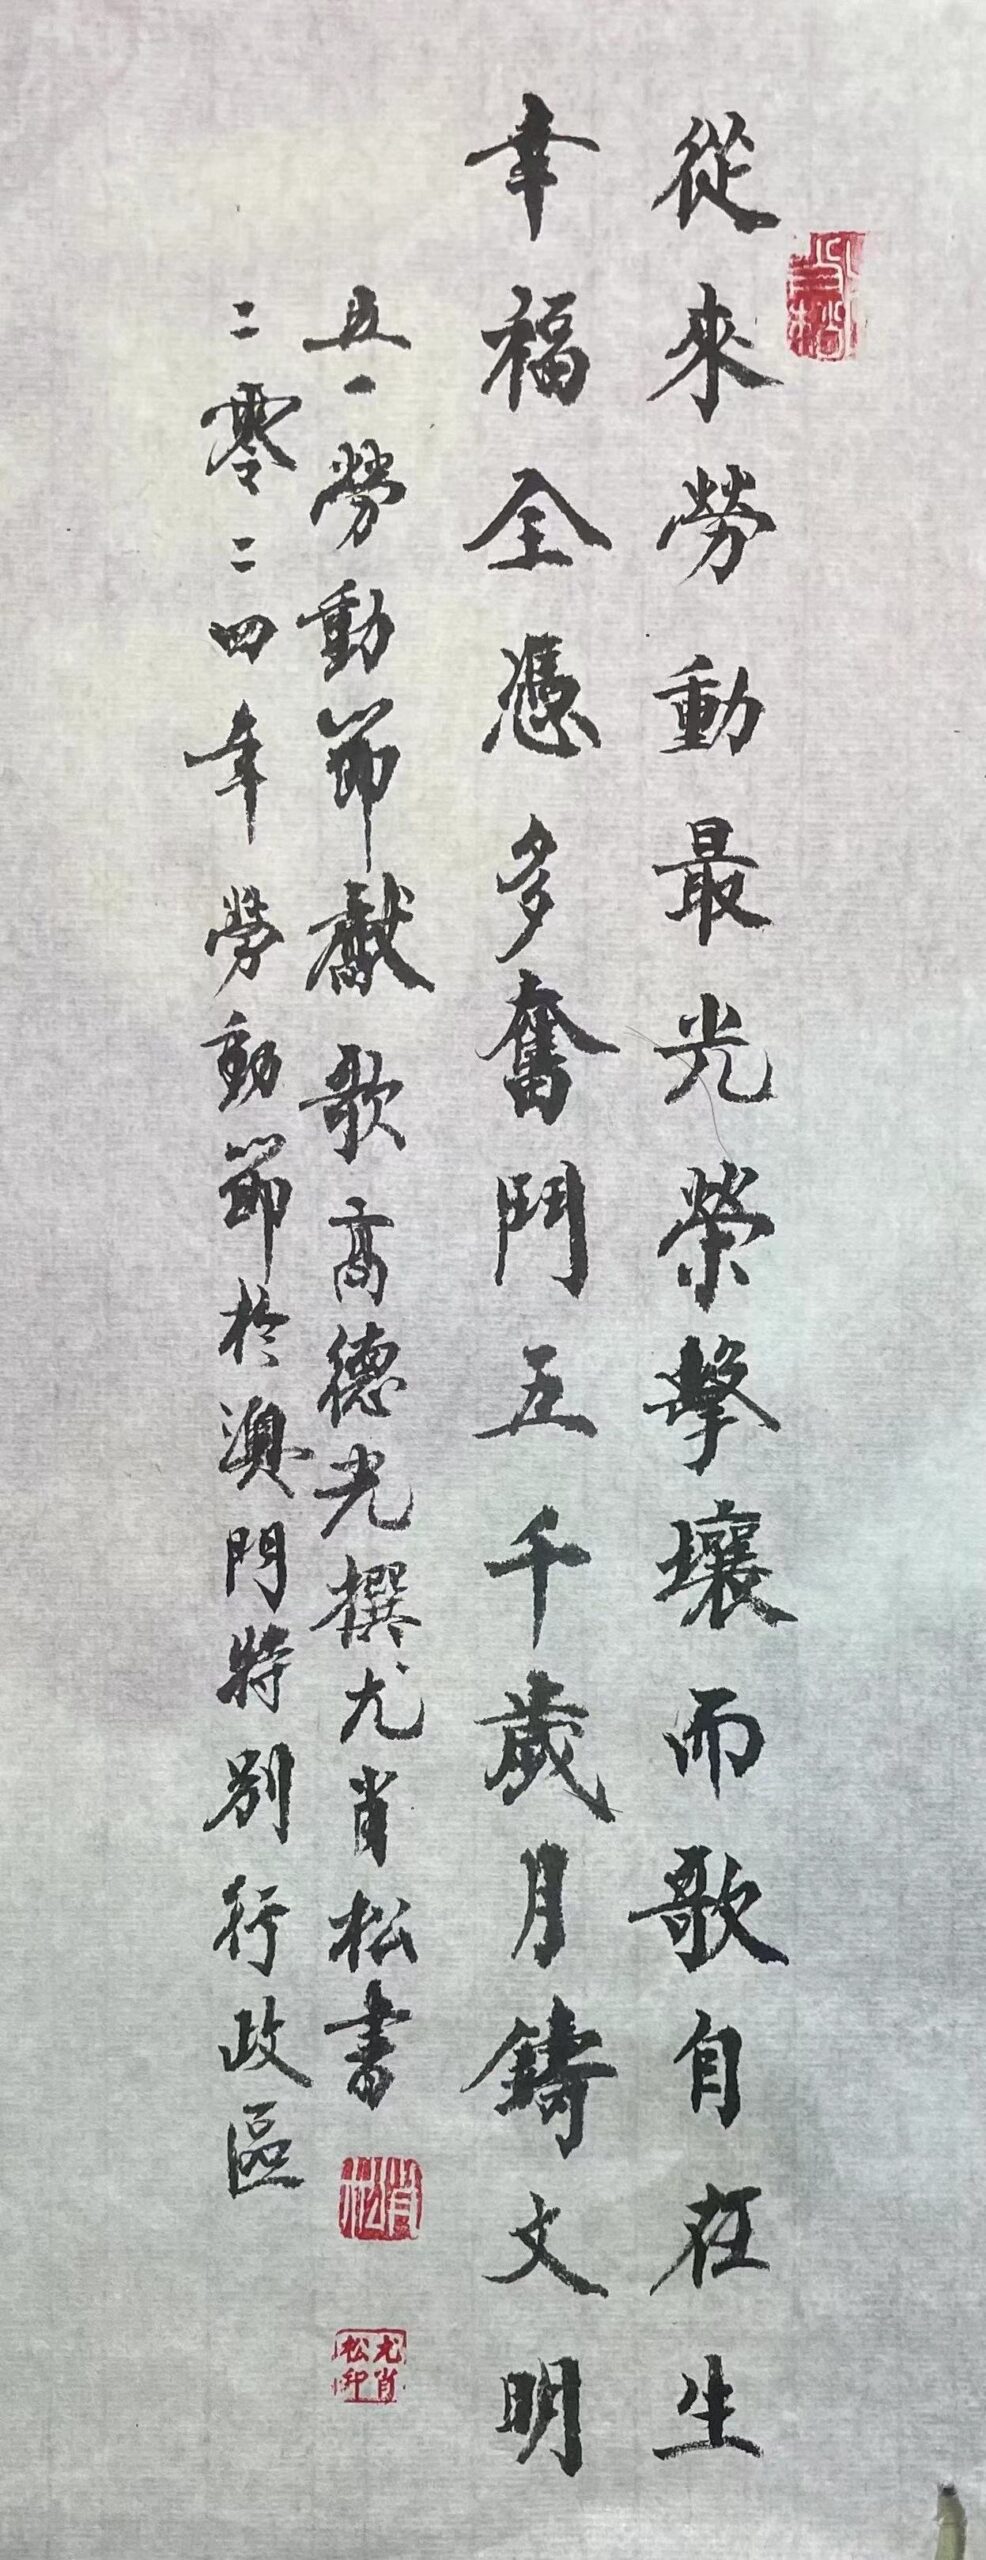 從來勞動最光榮擊壤而歌自在生
幸福全憑多奮鬥五千歲月鑄文明
五一勞動節獻歌高德光撰尤肖松書
二零二四年勞動節於澳門特別行政區
肖松
尤肖松印